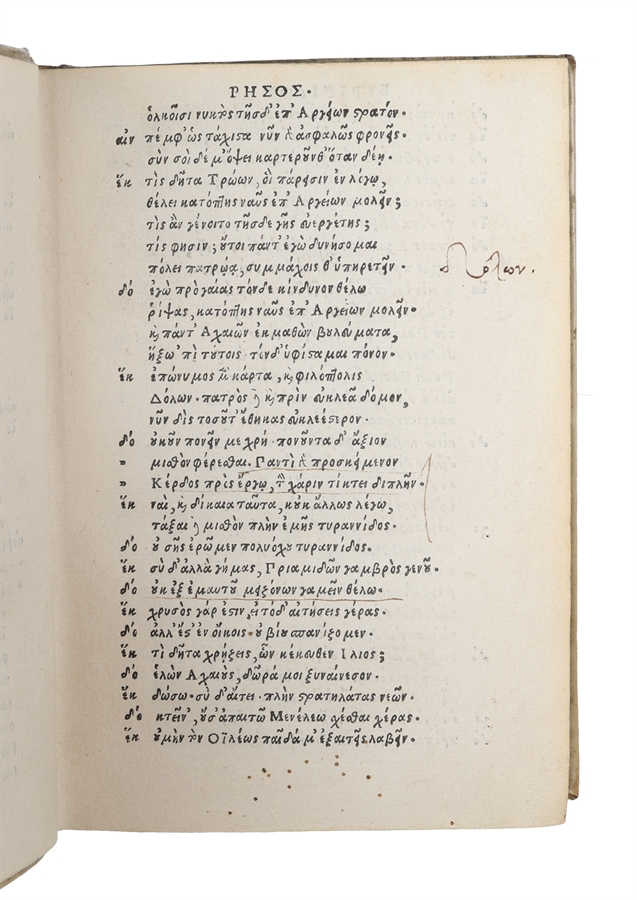 ΡΗΣΟΣ.
ὁλκοῖσι νυκτὸς τῆσδ' ἐπ' Αργείων στρατόν.
αιν πέμφ' ὡς τάχιστα νῦν γὰρ ἀσφαλῶς φρονεῖς.
σὺν σοὶ δέ μ' ὄψει καρτερουνθ' ὅταν δέῃ.
ἕκ τὶς δῆτα Τρώων, οἳ πάρεισιν ἐν λόγῳ,
θέλει κατόπτης ναῦς ἐπ' Αργείων μολεῖν;
τὶς ἂν γένοιτο τῆσδε γῆς εὐεργέτης;
τίς φησιν; οὔτοι πάντ' ἐγὼ δυνήσομαι
πόλει πατρῴᾳ, συμμάχοις θ' ὑπηρετεῖν.
Δόλων.
δό ἐγὼ πρὸ γαίας τόνδε κίνδυνον θέλω
ῥίψας, κατόπτης ναῦς ἐπ' Αργείων μολεῖν.
καὶ πάντ' Αχαιῶν ἐκμαθὼν βουλεύματα,
ἥξω 'πὶ τούτοις· τόνδ' ὑφίσταμαι πόνον.
ἕκ ἐπώνυμος μὲν κάρτα, καὶ φιλόπτολις
Δόλων· πατρὸς δὲ καὶ πρὶν εὐκλεᾶ δόμον,
νῦν δὶς τοσοῦτ' ἔθηκας εὐκλεέστερον.
δό οὐκοῦν πονεῖν με χρή· πονοῦντα δ' ἄξιον
» μισθὸν φέρεσθαι. Παντὶ γὰρ προσκείμενον
» Κέρδος πρὸς ἔργῳ, τὴν χάριν τίκτει διπλῆν.
ἕκ ναὶ, καὶ δίκαια ταῦτα, κοὐκ ἄλλως λέγω,
τάξαι δὲ μισθὸν πλὴν ἐμῆς τυραννίδος.
δό οὐ σῆς ἐρῶμεν πολυόχου τυραννίδος.
ἕκ σὺ δ' ἀλλὰ γήμας, Πριαμιδῶν γαμβρὸς γενοῦ.
δό οὐκ ἐξ ἐμαυτοῦ μειζόνων γαμεῖν θέλω.
ἕκ χρυσὸς γάρ ἐστιν, εἰ τόδ' αἰτήσεις γέρας.
δό ἀλλ' ἔστ' ἐν οἴκοις· οὐ βίου σπανίζομεν.
ἕκ τί δῆτα χρῄζεις, ὧν κέκευθεν Ιλιος;
δό ἑλὼν Αχαιοὺς, δῶρά μοι ξυναίνεσον.
ἕκ δώσω· σὺ δ' αἴτει· πλὴν στρατηλάτας νεῶν.
δό κτεῖν', οὔ σ' ἀπαιτῶ Μενέλεω χέσθαι χέρας.
ἕκ οὐ μὴν τὸν Οϊλέως παῖδά μ' ἐξαιτεῖς λαβεῖν.